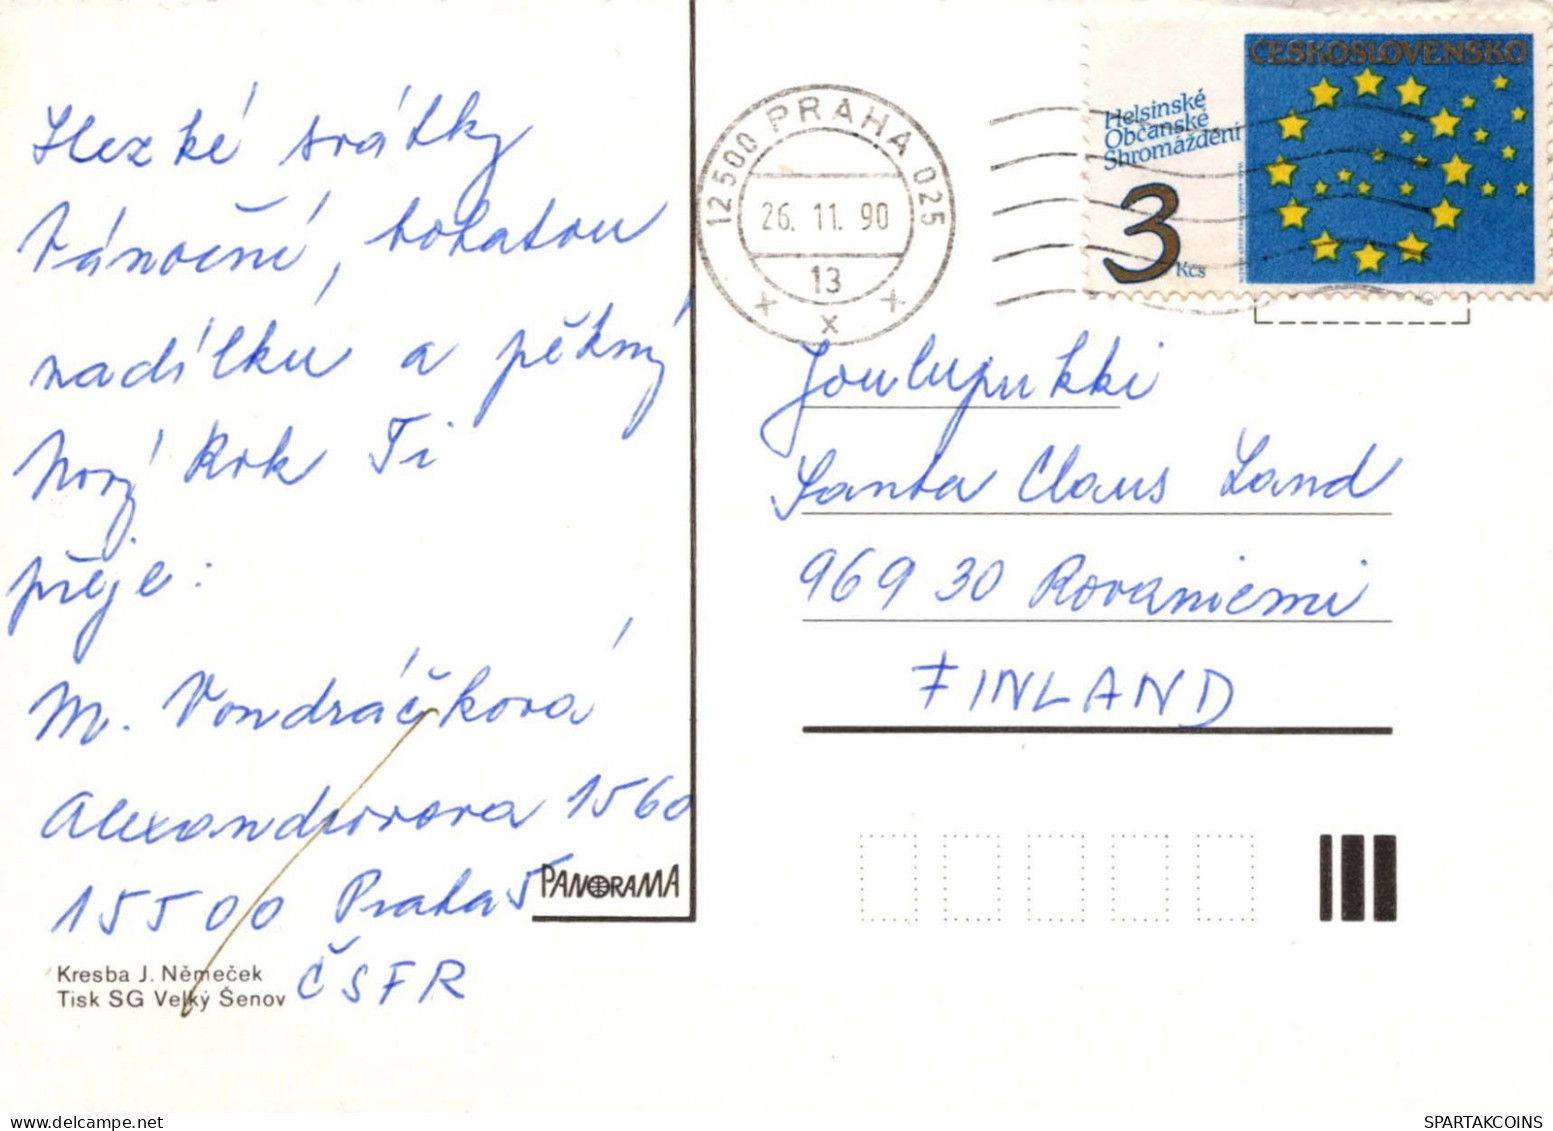 Hezké svátky
Vánoční, bohatou
nadílku a pěkný
Nový Rok Ti
přeje:
M. Vondráčková
Alexandrovova 1560
155 00 Praha 5
ČSFR
Kresba J. Němeček
Tisk SG Velký Šenov
PANORAMA
12500 PRAHA 025
26. 11. 90
13
x x x
ČESKOSLOVENSKO
Helsinské
Občanské
Shromáždění
3
Kčs
Joulupukki
Santa Claus Land
969 30 Rovaniemi
FINLAND
SPARTAKCOINS